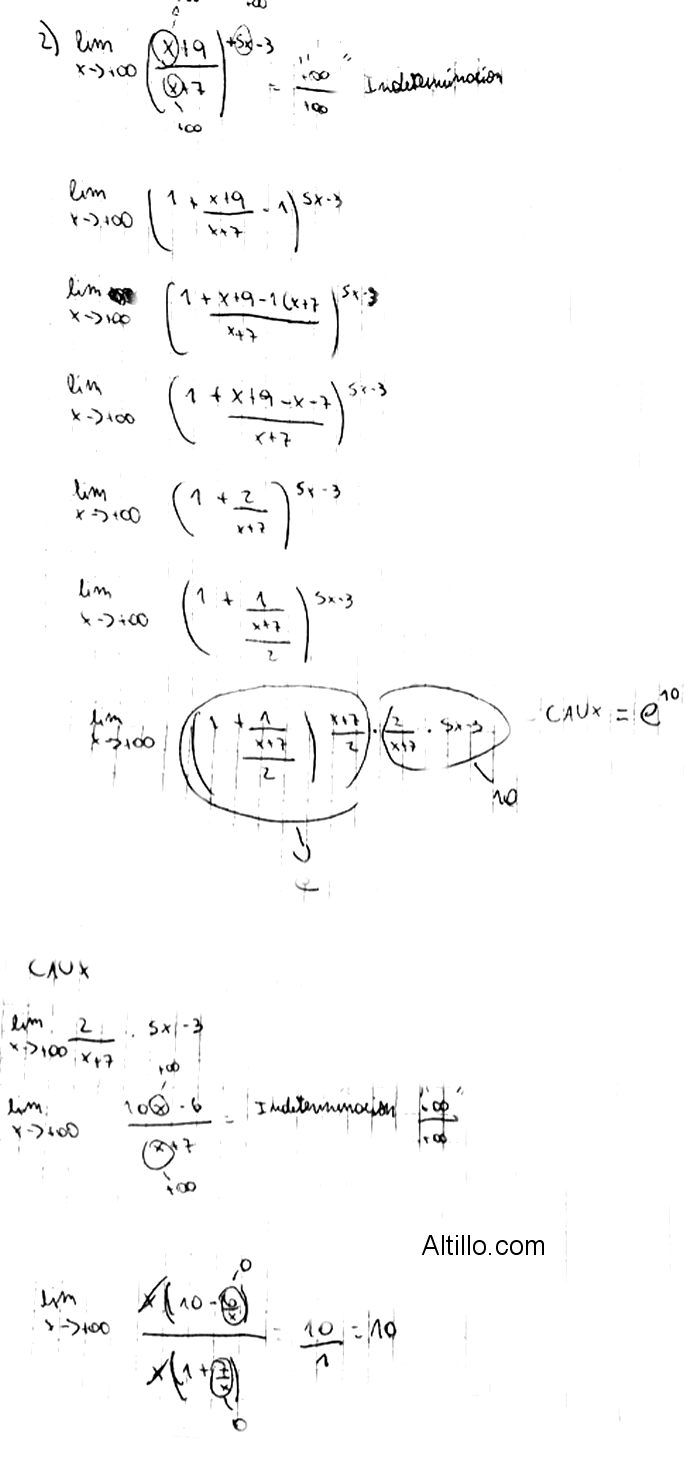 +∞ +∞
2) lim x→+∞ (x+9 / x+7)^(+5x-3) = "+∞ / +∞" Indeterminación
+∞
lim x→+∞ (1 + x+9 / x+7 - 1)^(5x-3)
lim x→+∞ (1 + x+9-1(x+7 / x+7)^(5x-3)
lim x→+∞ (1 + x+9-x-7 / x+7)^(5x-3)
lim x→+∞ (1 + 2 / x+7)^(5x-3)
lim x→+∞ (1 + 1 / (x+7 / 2))^(5x-3)
lim x→+∞ ((1 + 1 / (x+7 / 2))^(x+7 / 2 · (2 / x+7 · 5x-3 CAUX = e^10
10
e
CAUX
lim x→+∞ 2 / x+7 · 5x-3
+∞
lim x→+∞ 10x-6 / x+7 = Indeterminación "+∞ / +∞"
+∞
Altillo.com
0
lim x→+∞ x(10 - 6/x) / x(1 + 7/x) = 10 / 1 = 10
0